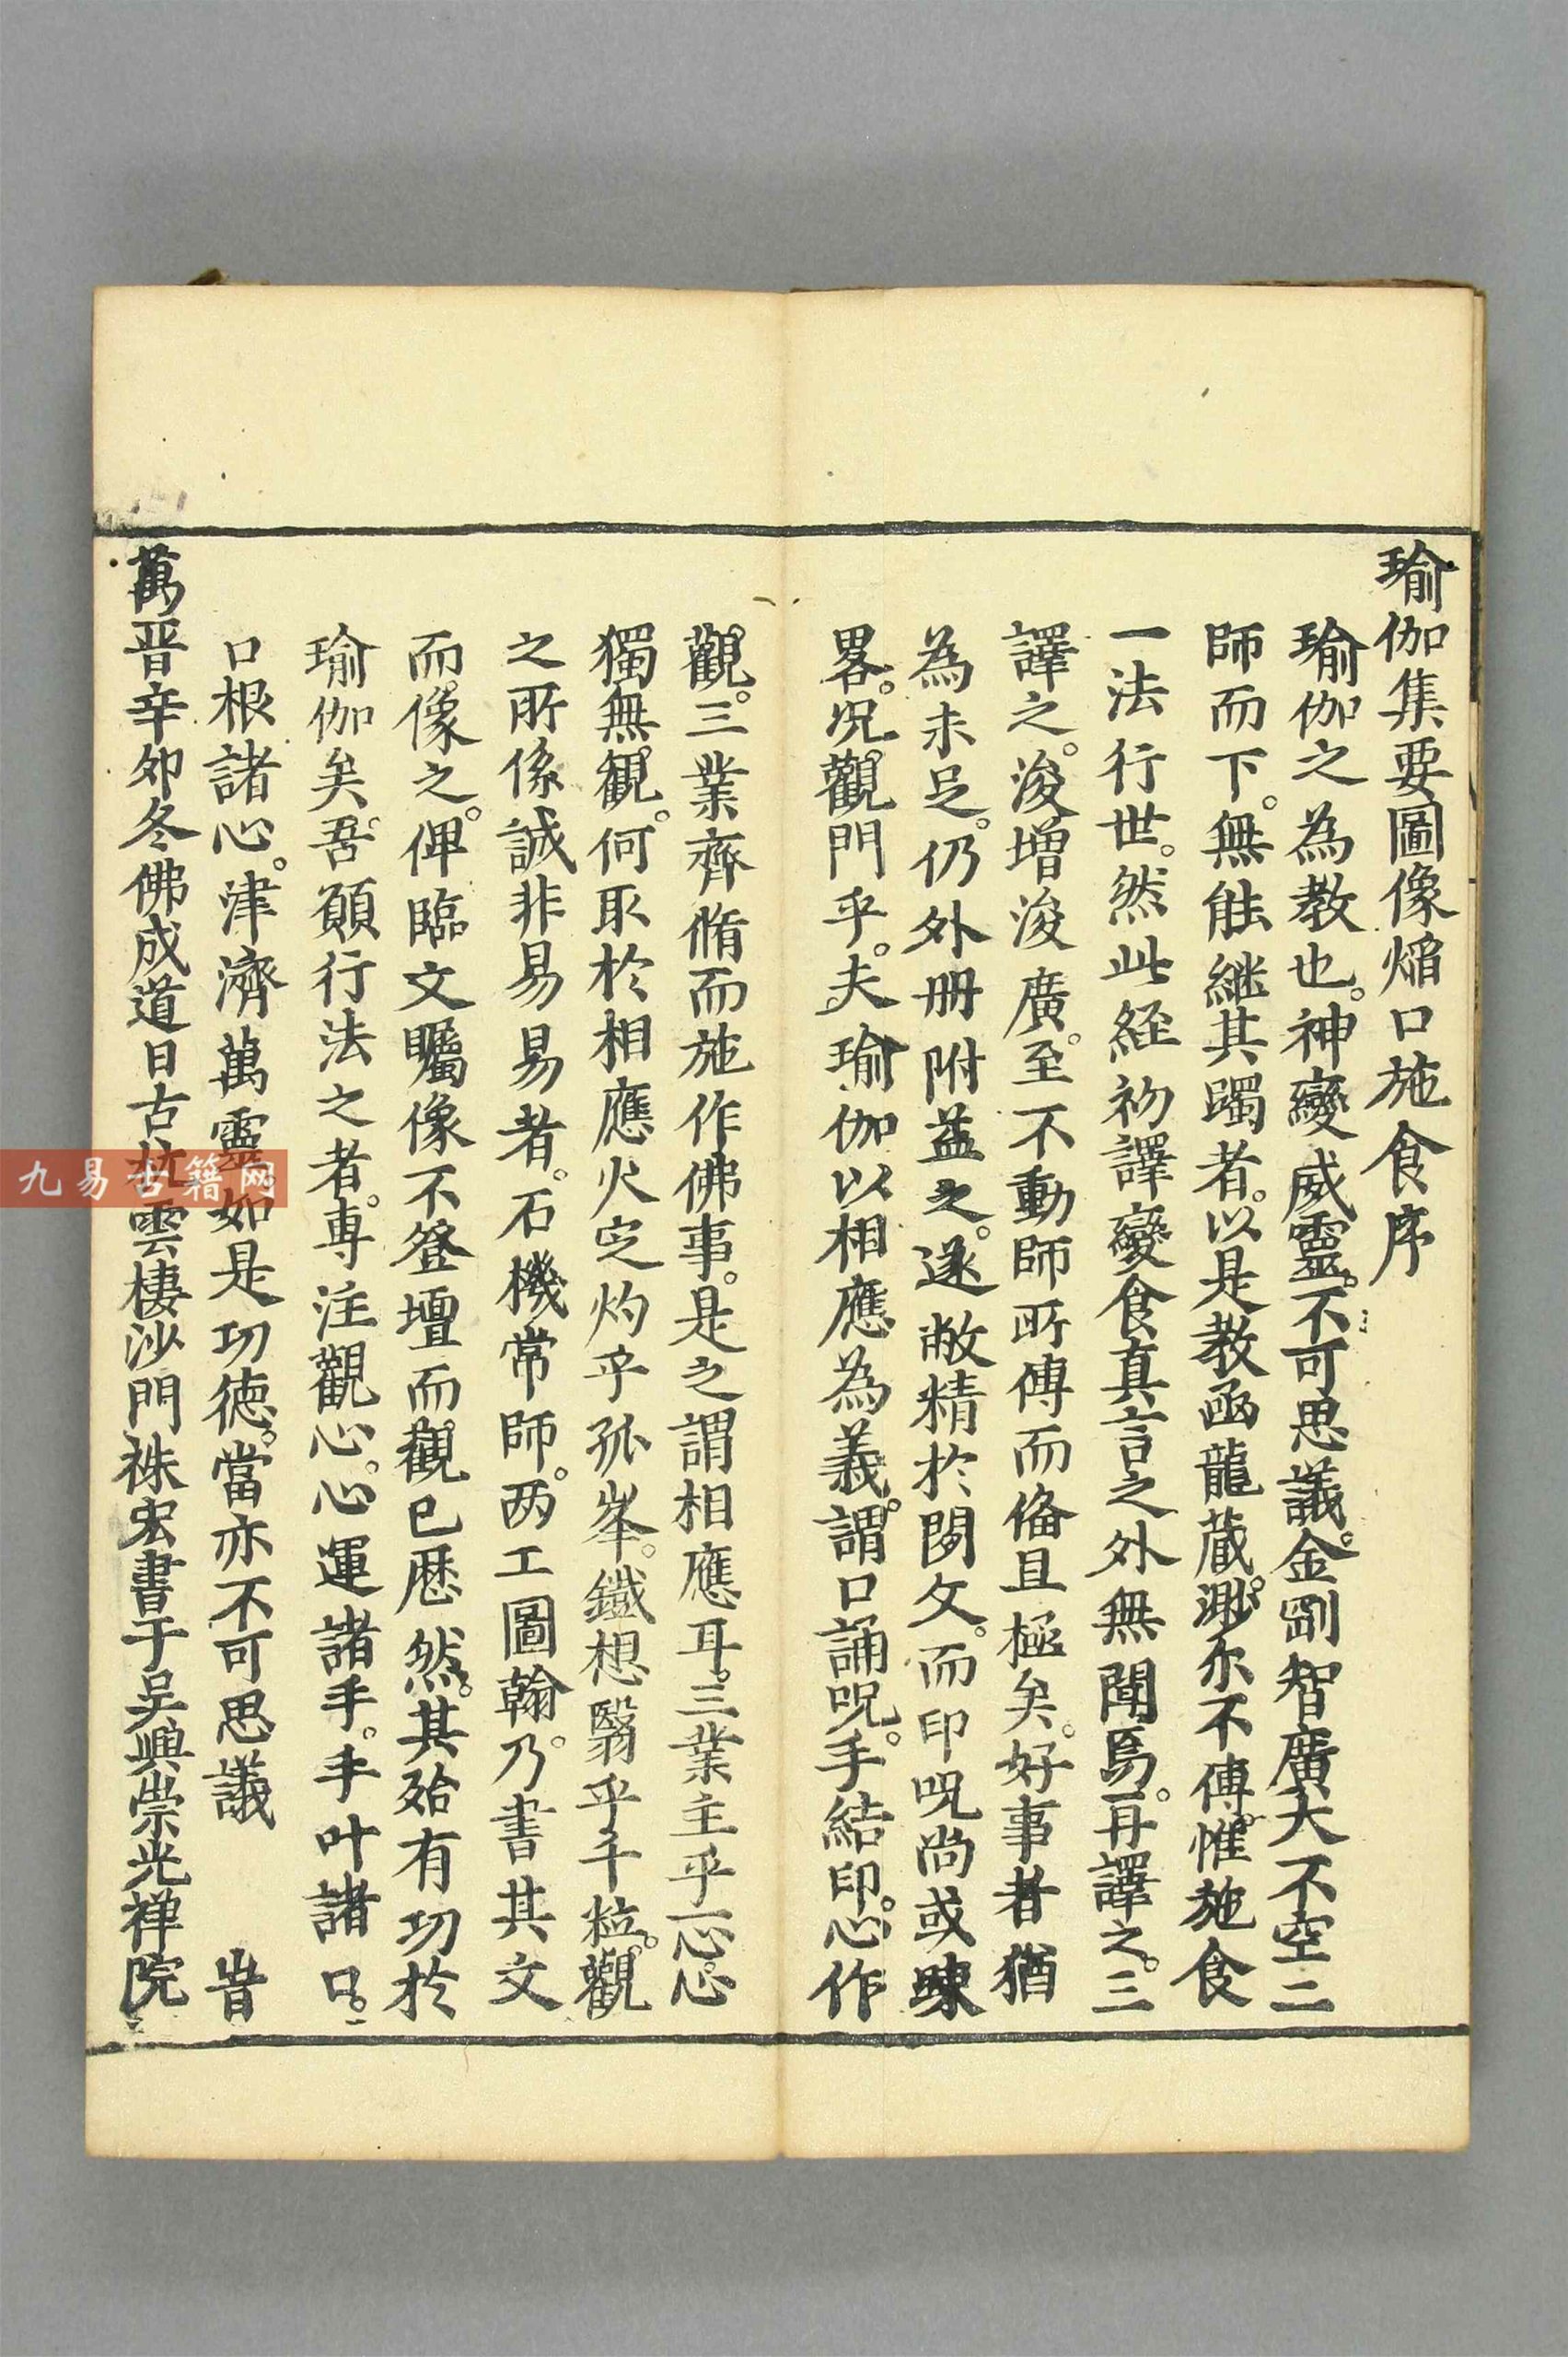 瑜伽集要圖像燄口施食序
瑜伽之為教也。神變威靈。不可思議。金剛智廣大不空二
師而下。無能繼其躅者。以是教函龍蔵。渺尔不傳。惟施食
一法行世。然此經初譯變食真言之外無聞焉。再譯之。三
譯之。浚增浚廣。至不動師所傳而俻且極矣。好事者猶
為未足。仍外冊附益之。遂敝精於閱文。而印呪尚或疎
畧。况觀門乎。夫瑜伽以相應為義。謂口誦呪。手結印。心作
觀。三業齊脩而施作佛事。是之謂相應耳。三業主乎心。心
獨無觀。何取於相應火定灼乎孤峯。鐵想翳乎千粒。觀
之所係誠非易易者。石機常師。两工圖翰。乃書其文
而像之。俾臨文矚像不登壇而觀已歷然。其殆有功於
瑜伽矣。吾願行法之者。專注觀心。心運諸手。手叶諸口。
口根諸心。津濟萬靈。如是功徳。當亦不可思議 旹
萬曆辛卯冬佛成道日古杭雲棲沙門袾宏書于吴興崇光禅院
九易古籍网